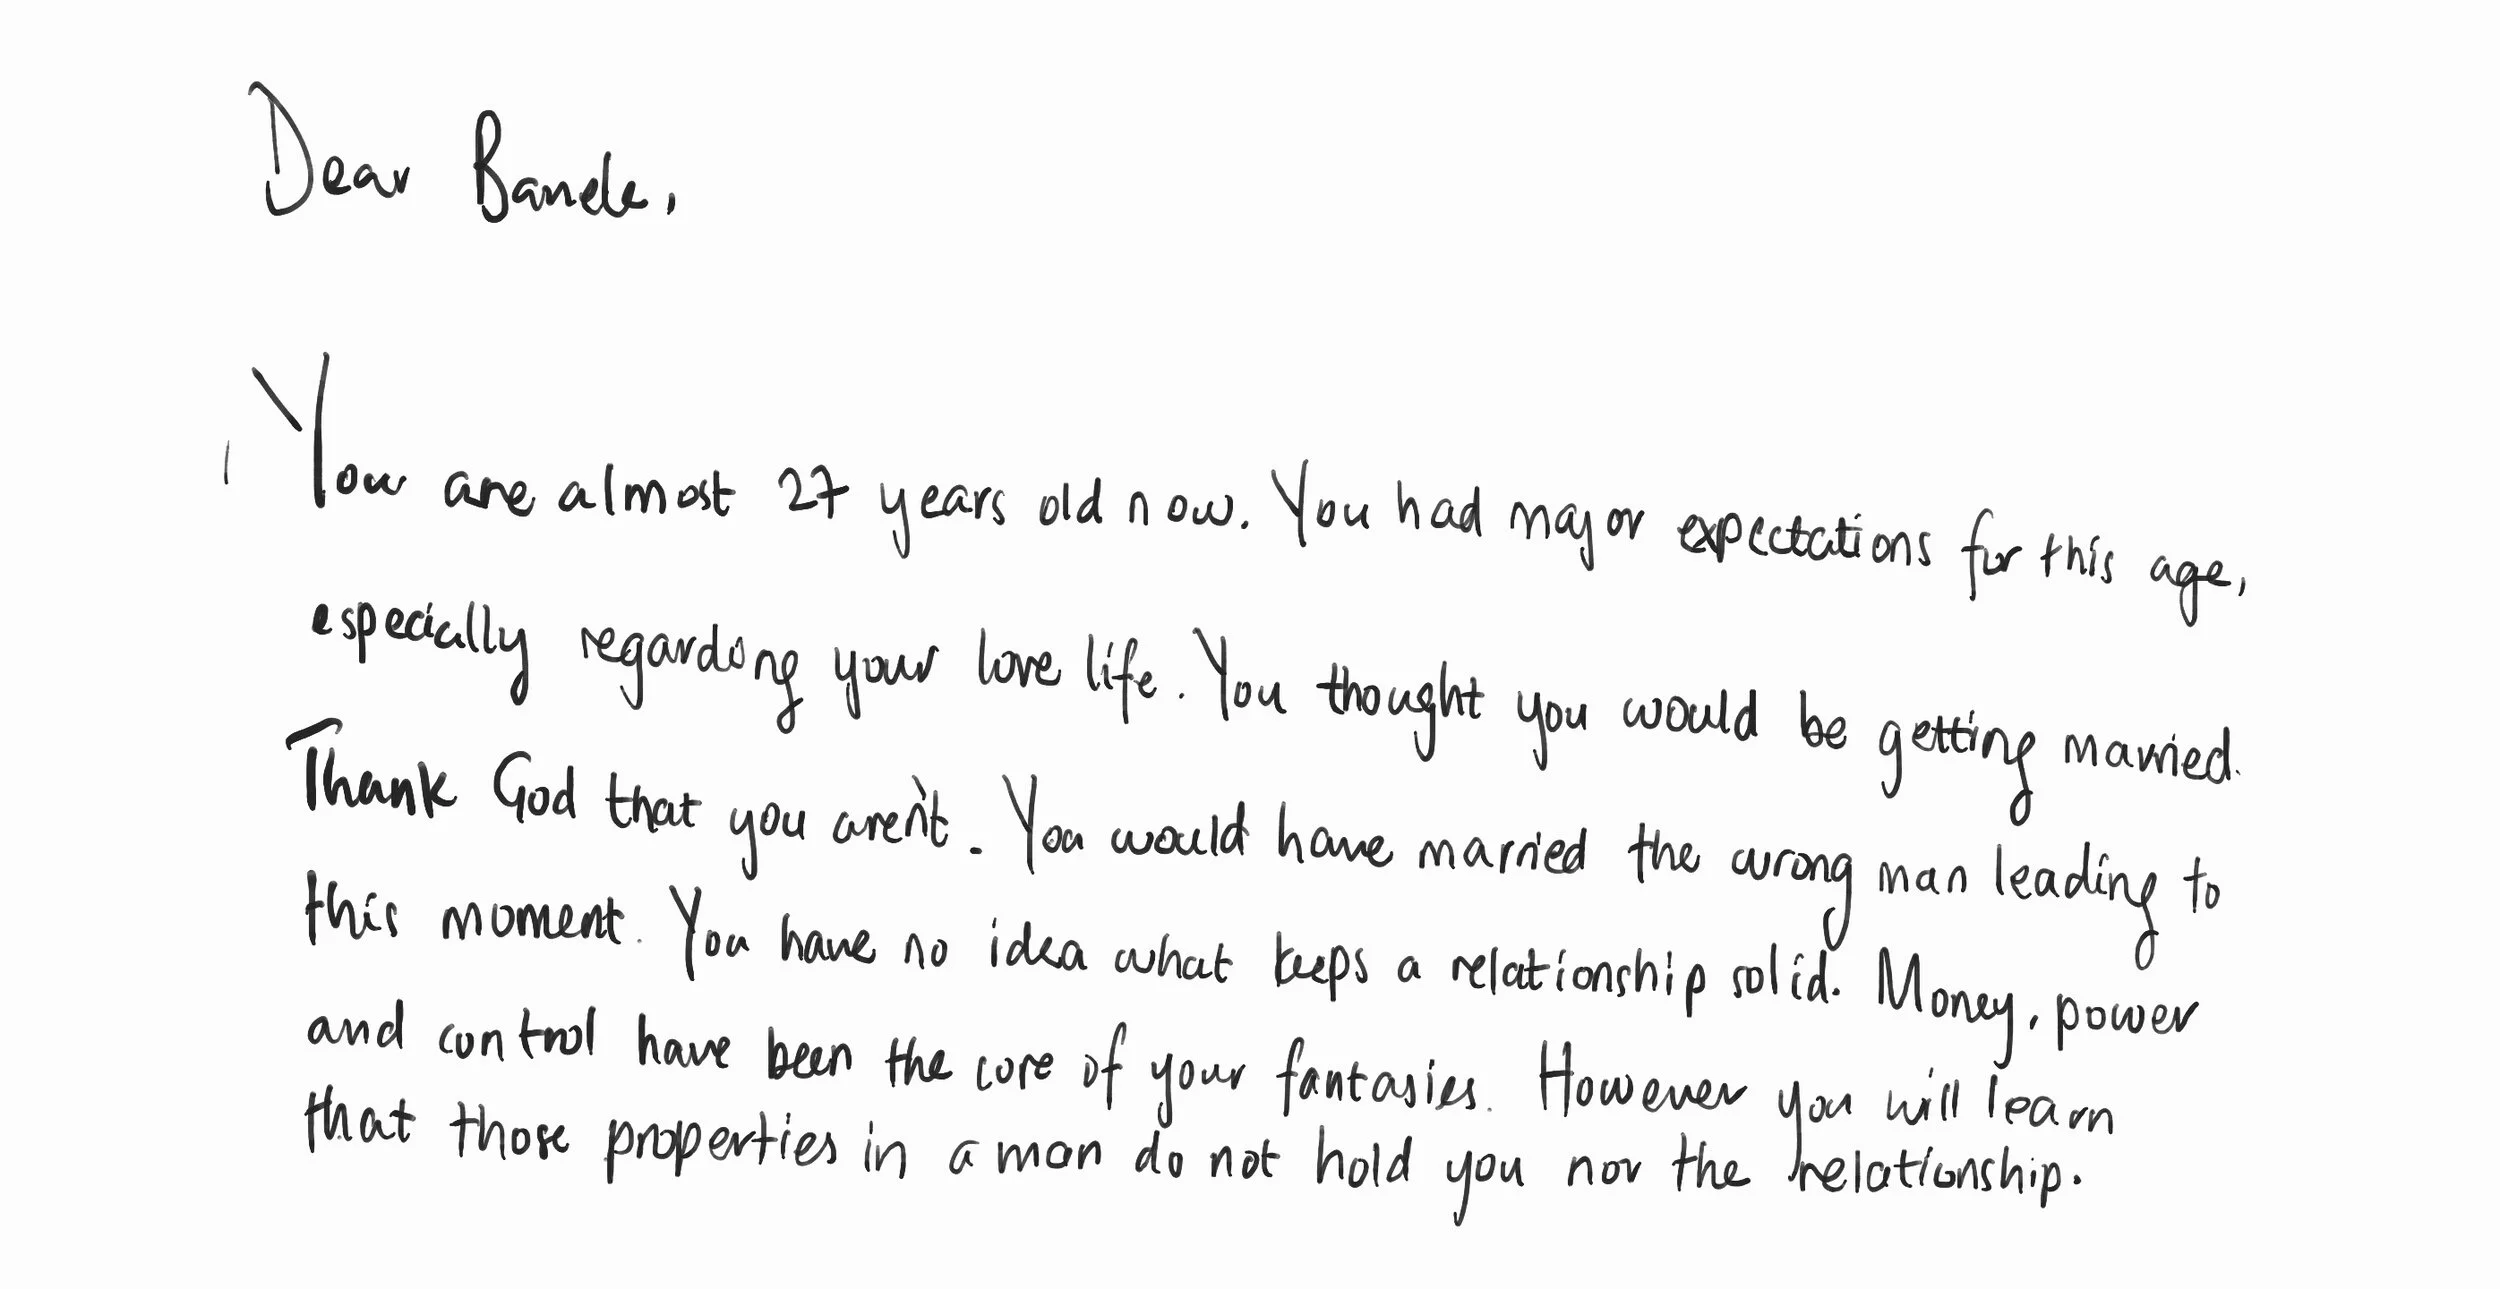 Dear Banele,
You are almost 27 years old now. You had major expectations for this age,
especially regarding your love life. You thought you would be getting married.
Thank God that you aren't. You would have married the wrong man leading to
this moment. You have no idea what keeps a relationship solid. Money, power
and control have been the core of your fantasies. However you will learn
that those properties in a man do not hold you nor the relationship.